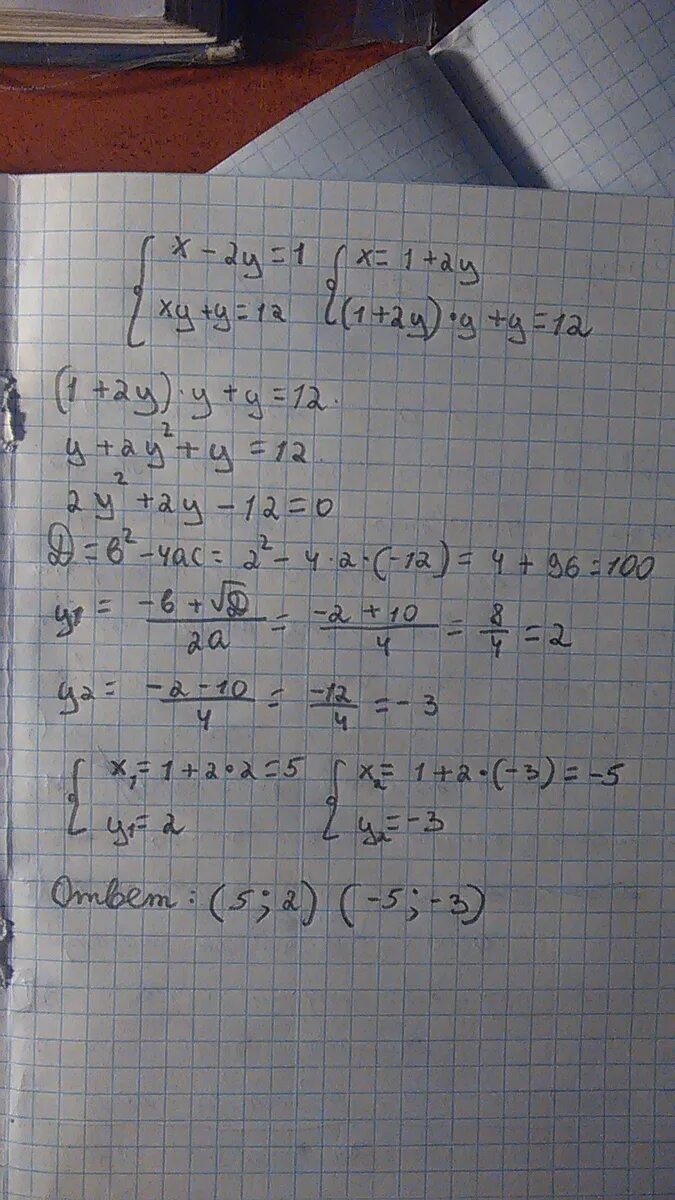 { x - 2y = 1 { x = 1 + 2y
{ xy + y = 12 { (1 + 2y) · y + y = 12
(1 + 2y) · y + y = 12.
y + 2y² + y = 12.
2y² + 2y - 12 = 0
D = b² - 4ac = 2² - 4 · 2 · (-12) = 4 + 96 = 100
y1 = (-b + √D)/(2a) = (-2 + 10)/4 = 8/4 = 2
y2 = (-2 - 10)/4 = -12/4 = -3
{ x₁ = 1 + 2 · 2 = 5 { x₂ = 1 + 2 · (-3) = -5
{ y1 = 2 { y₂ = -3
Ответ : (5; 2) (-5; -3)